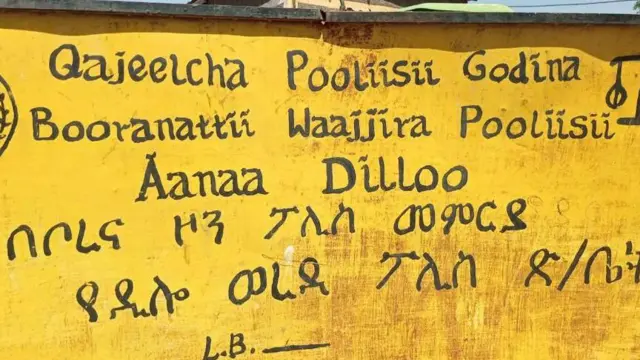 Qajeelcha Pooliisii Godina
Booranattii Waajjira Pooliisii
Aanaa Dilloo
በቦረና ዞን ፖሊስ መምርያ
የዲሎ ወረዳ ፖሊስ ጽ/ቤት
L.B.